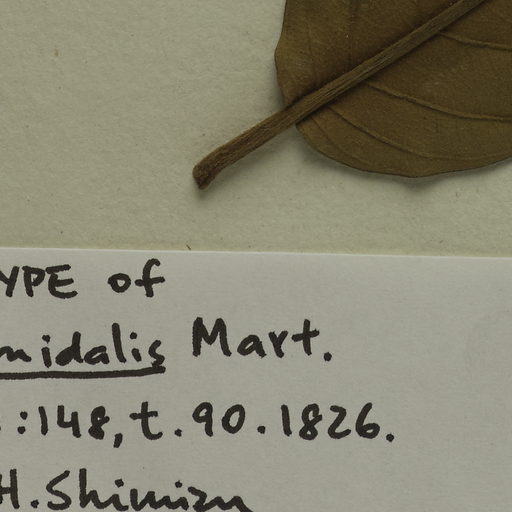 YPE of
midalis Mart.
:148, t. 90. 1826.
H. Shimizu